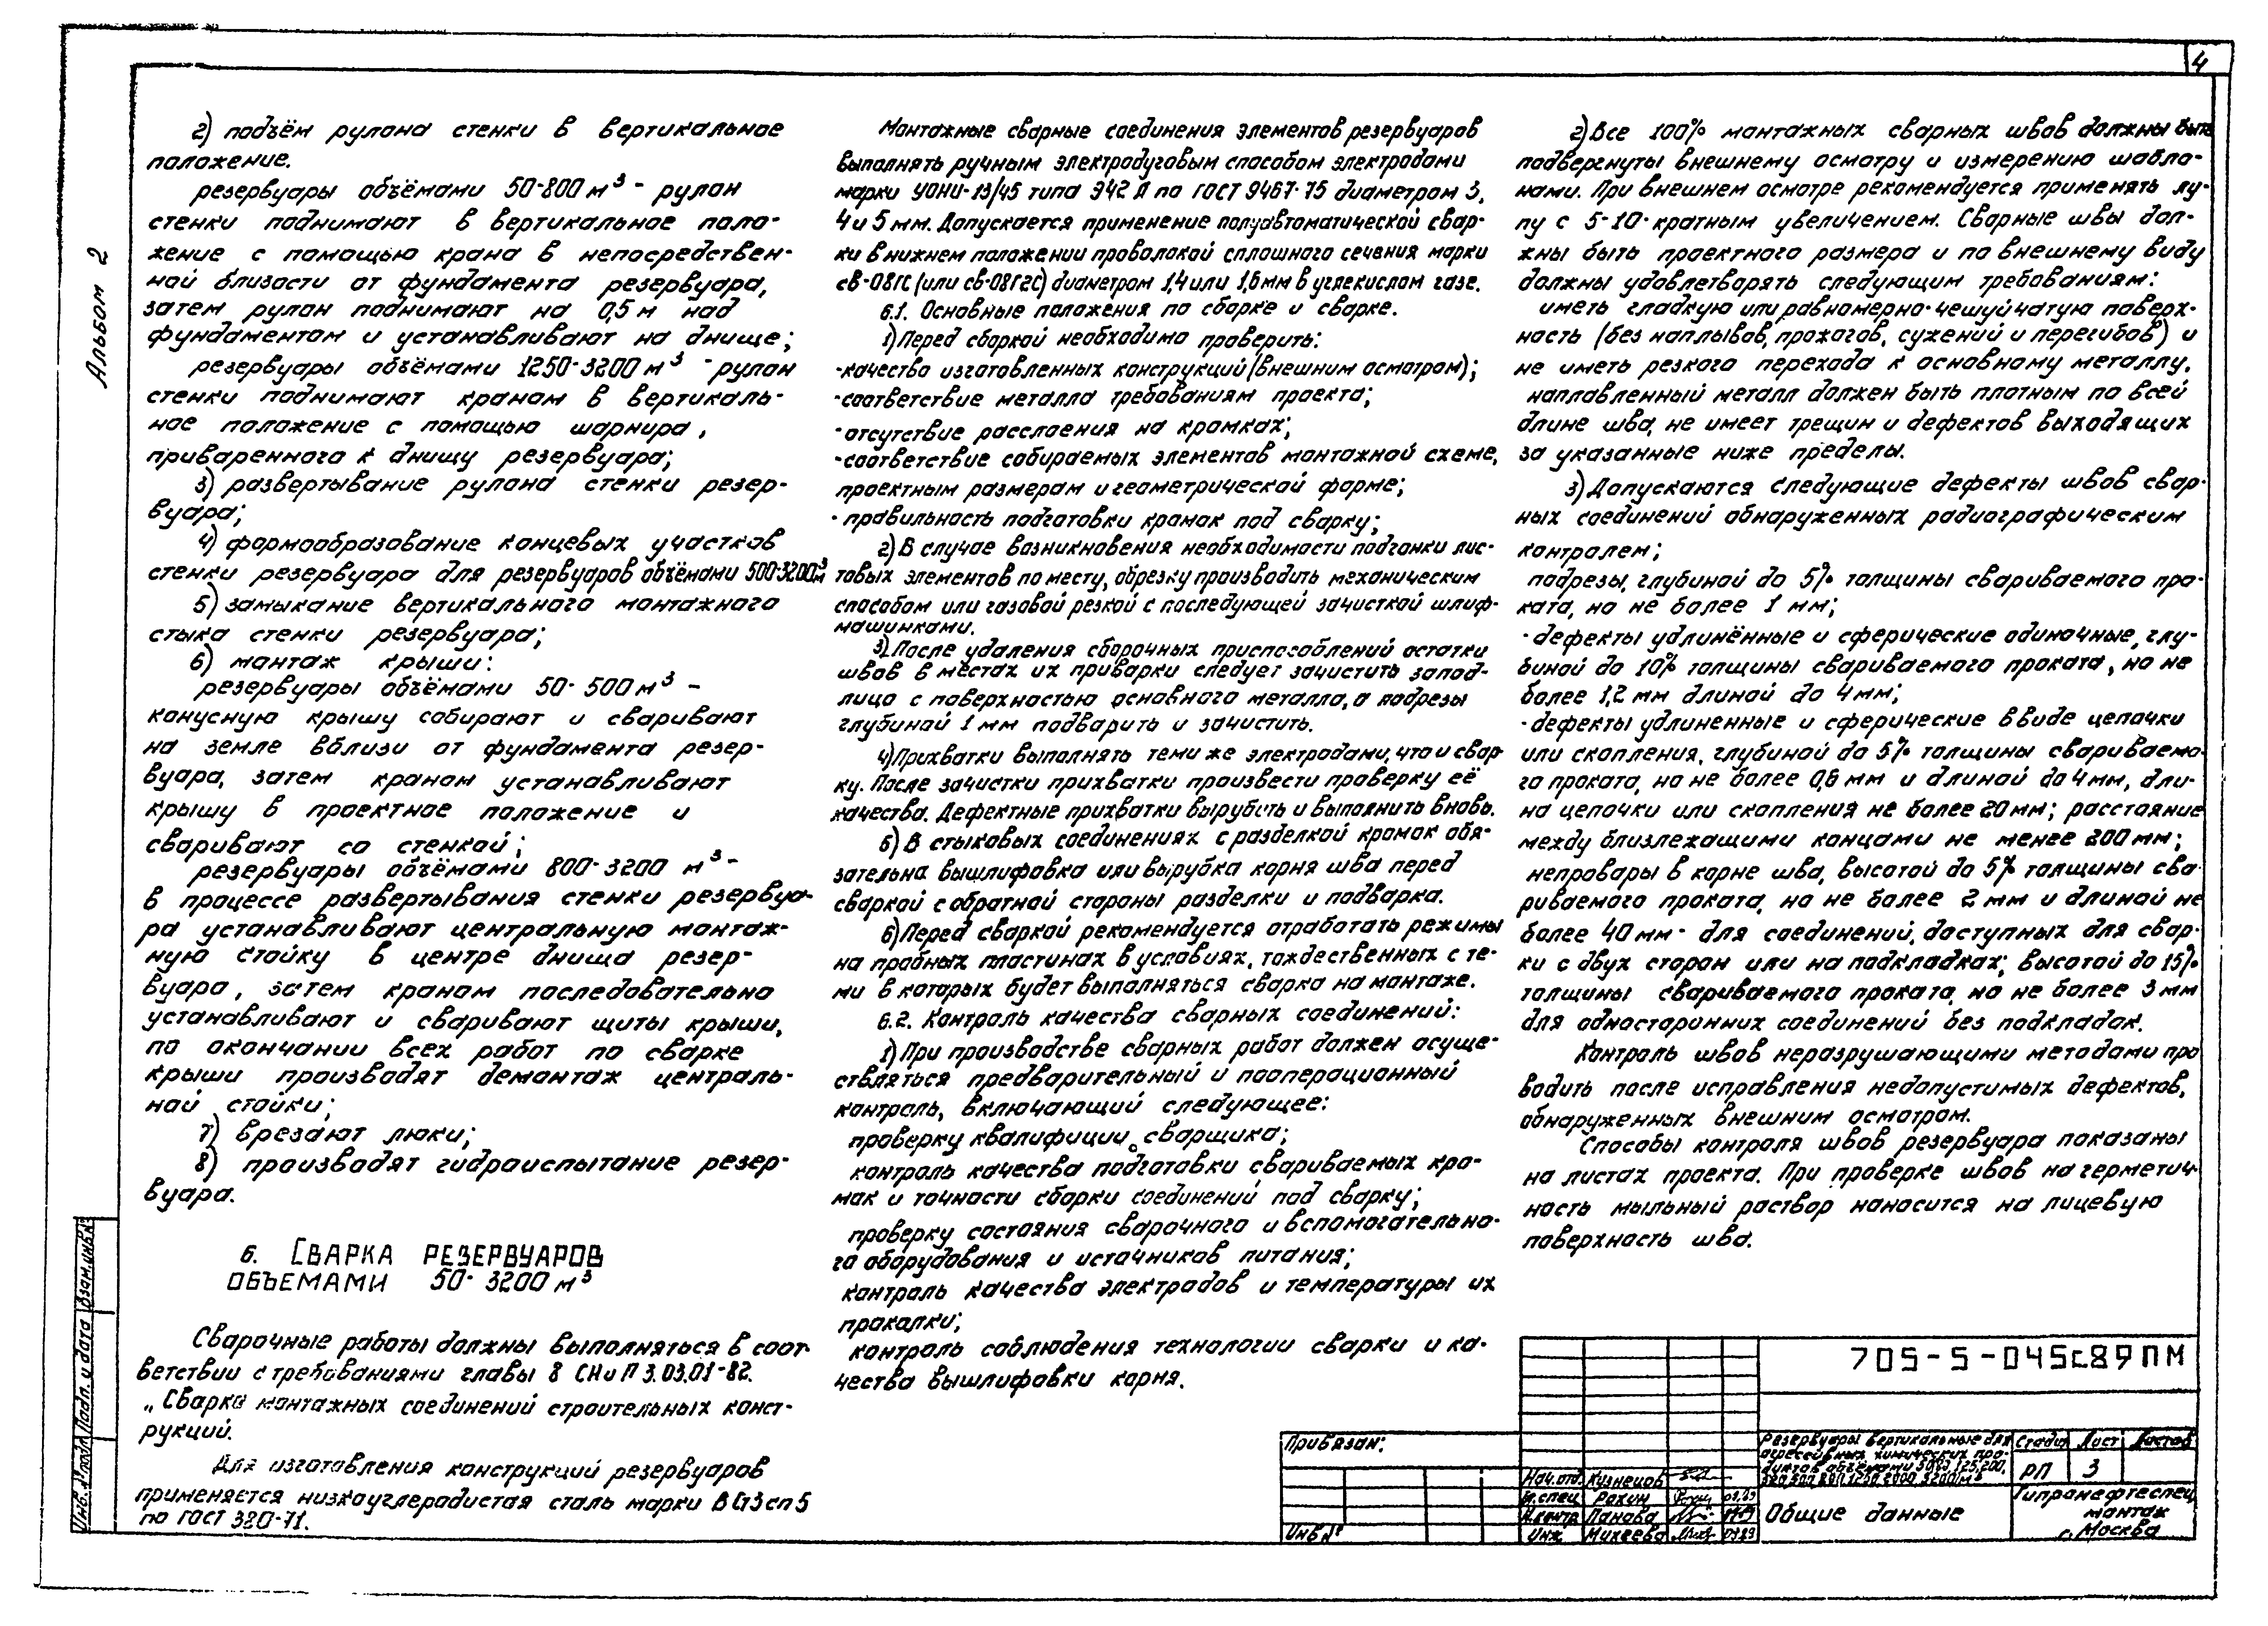 4
Альбом 2
2) подъём рулона стенки в вертикальное
положение.
резервуары объёмами 50-800 м³ - рулон
стенки поднимают в вертикальное поло-
жение с помощью крана в непосредствен-
ной близости от фундамента резервуара,
затем рулон поднимают на 0,5 м над
фундаментом и устанавливают на днище;
резервуары объёмами 1250-3200 м³ - рулон
стенки поднимают краном в вертикаль-
ное положение с помощью шарнира,
приваренного к днищу резервуара;
3) развертывание рулона стенки резер-
вуара;
4) формообразование концевых участков
стенки резервуара для резервуаров объёмами 500-3200м³
5) замыкание вертикального монтажного
стыка стенки резервуара;
6) монтаж крыши:
резервуары объёмами 50-500 м³ -
конусную крышу собирают и сваривают
на земле вблизи от фундамента резер-
вуара, затем краном устанавливают
крышу в проектное положение и
сваривают со стенкой;
резервуары объёмами 800-3200 м³ -
в процессе развертывания стенки резервуа-
ра устанавливают центральную монтаж-
ную стойку в центре днища резер-
вуара, затем краном последовательно
устанавливают и сваривают щиты крыши,
по окончании всех работ по сварке
крыши производят демонтаж централь-
ной стойки;
7) врезают люки;
8) производят гидроиспытание резер-
вуара.
6. Сварка резервуаров
объемами 50-3200 м³
Сварочные работы должны выполняться в соот-
ветствии с требованиями главы 8 СНиП 3.03.01-82.
„Сварка монтажных соединений строительных конст-
рукций.
Для изготовления конструкций резервуаров
применяется низкоуглеродистая сталь марки ВСт3сп5
по ГОСТ 380-71.
Монтажные сварные соединения элементов резервуаров
выполнять ручным электродуговым способом электродами
марки УОНИ-13/45 типа Э42А по ГОСТ 9467-75 диаметром 3,
4 и 5 мм. Допускается применение полуавтоматической свар-
ки в нижнем положении проволокой сплошного сечения марки
св-08ГС (или св-08Г2С) диаметром 1,4 или 1,6 мм в углекислом газе.
6.1. Основные положения по сборке и сварке.
1) Перед сборкой необходимо проверить:
-качество изготовленных конструкций (внешним осмотром);
-соответствие металла требованиям проекта;
-отсутствие расслоения на кромках;
-соответствие собираемых элементов монтажной схеме,
проектным размерам и геометрической форме;
- правильность подготовки кромок под сварку;
2) В случае возникновения необходимости подгонки лис-
товых элементов по месту, обрезку производить механическим
способом или газовой резкой с последующей зачисткой шлиф-
машинками.
3) После удаления сборочных приспособлений остатки
швов в местах их приварки следует зачистить запод-
лицо с поверхностью основного металла, а подрезы
глубиной 1 мм подварить и зачистить.
4) Прихватки выполнять теми же электродами, что и свар
ку. После зачистки прихватки произвести проверку её
качества. Дефектные прихватки вырубить и выполнить вновь.
5) В стыковых соединениях с разделкой кромок обя-
зательна вышлифовка или вырубка корня шва перед
сваркой с обратной стороны разделки и подварка.
6) Перед сваркой рекомендуется отработать режимы
на пробных пластинах в условиях, тождественных с те-
ми в которых будет выполняться сварка на монтаже.
6.2. Контроль качества сварных соединений:
1) При производстве сварных работ должен осуще-
ствляться предварительный и пооперационный
контроль, включающий следующее:
проверку квалифиции сварщика;
контроль качества подготовки свариваемых кро-
мок и точности сборки соединений под сварку;
проверку состояния сварочного и вспомогательно-
го оборудования и источников питания;
контроль качества электродов и температуры их
прокалки;
контроль соблюдения технологии сварки и ка-
чества вышлифовки корня.
2) Все 100% монтажных сварных швов должны быть
подвергнуты внешнему осмотру и измерению шабло-
нами. При внешнем осмотре рекомендуется применять лу-
пу с 5-10-кратным увеличением. Сварные швы дол-
жны быть проектного размера и по внешнему виду
должны удовлетворять следующим требованиям:
иметь гладкую или равномерно-чешуйчатую поверх-
ность (без наплывов, прожогов, сужений и перегибов) и
не иметь резкого перехода к основному металлу.
наплавленный металл должен быть плотным по всей
длине шва, не имеет трещин и дефектов выходящих
за указанные ниже пределы.
3) Допускаются следующие дефекты швов свар-
ных соединений обнаруженных радиографическим
контролем;
подрезы, глубиной до 5% толщины свариваемого про-
ката, но не более 1 мм;
-дефекты удлинённые и сферические одиночные, глу-
биной до 10% толщины свариваемого проката, но не
более 1,2 мм длиной до 4 мм;
-дефекты удлиненные и сферические в виде цепочки
или скопления, глубиной до 5% толщины свариваемо-
го проката, но не более 0,6 мм и длиной до 4 мм, дли-
на цепочки или скопления не более 20 мм; расстояние
между близлежащими концами не менее 200 мм;
непровары в корне шва, высотой до 5% толщины сва-
риваемого проката, но не более 2 мм и длиной не
более 40 мм - для соединений, доступных для свар-
ки с двух сторон или на подкладках; высотой до 15%
толщины свариваемого проката, но не более 3 мм
для односторонних соединений без подкладок.
Контроль швов неразрушающими методами про
водить после исправления недопустимых дефектов,
обнаруженных внешним осмотром.
Способы контроля швов резервуара показаны
на листах проекта. При проверке швов на герметич-
ность мыльный раствор наносится на лицевую
поверхность шва.
Инв. № подл. Подп. и дата Взам.инв.№
Привязан:
Инв №
705-5-045с89ПМ
Резервуары вертикальные для
агрессивных химических про-
дуктов объёмами
Стадия Лист Листов
РП 3
Нач.отд. Кузнецов
Гл.спец Рохин
Н.контр Панова
Инж Михеева
Общие данные
Гипронефтеспец
монтаж
г. Москва